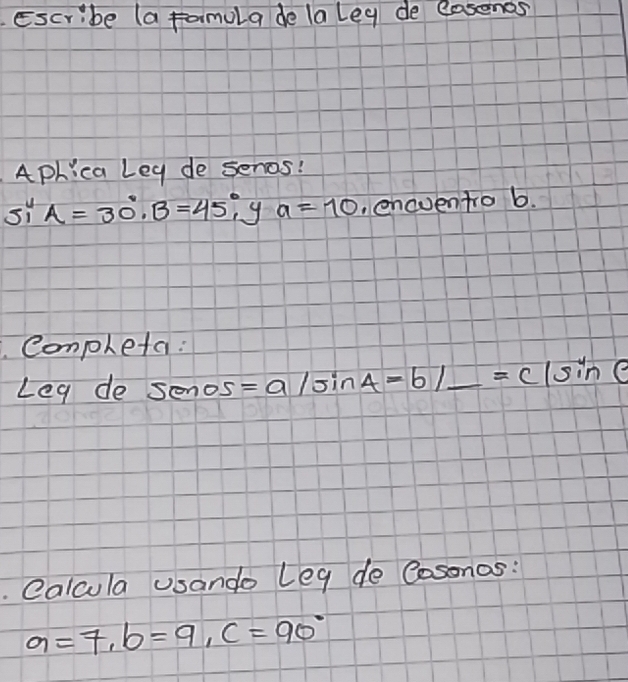 .Escribe la formula de la Ley de Cosenos
Aplica Ley de Senos:
Si A = 30°, B = 45°, y a = 10, encuentro b.
. Conpleta:
Ley de senos = a / sin A = b / __ = c / sin C
. Calcula usando Ley de Cosonos:
a = 7, b = 9, C = 90°